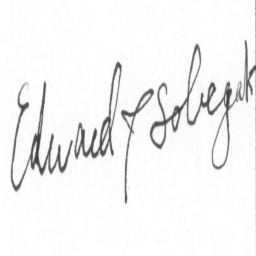 Edward F Sobczak